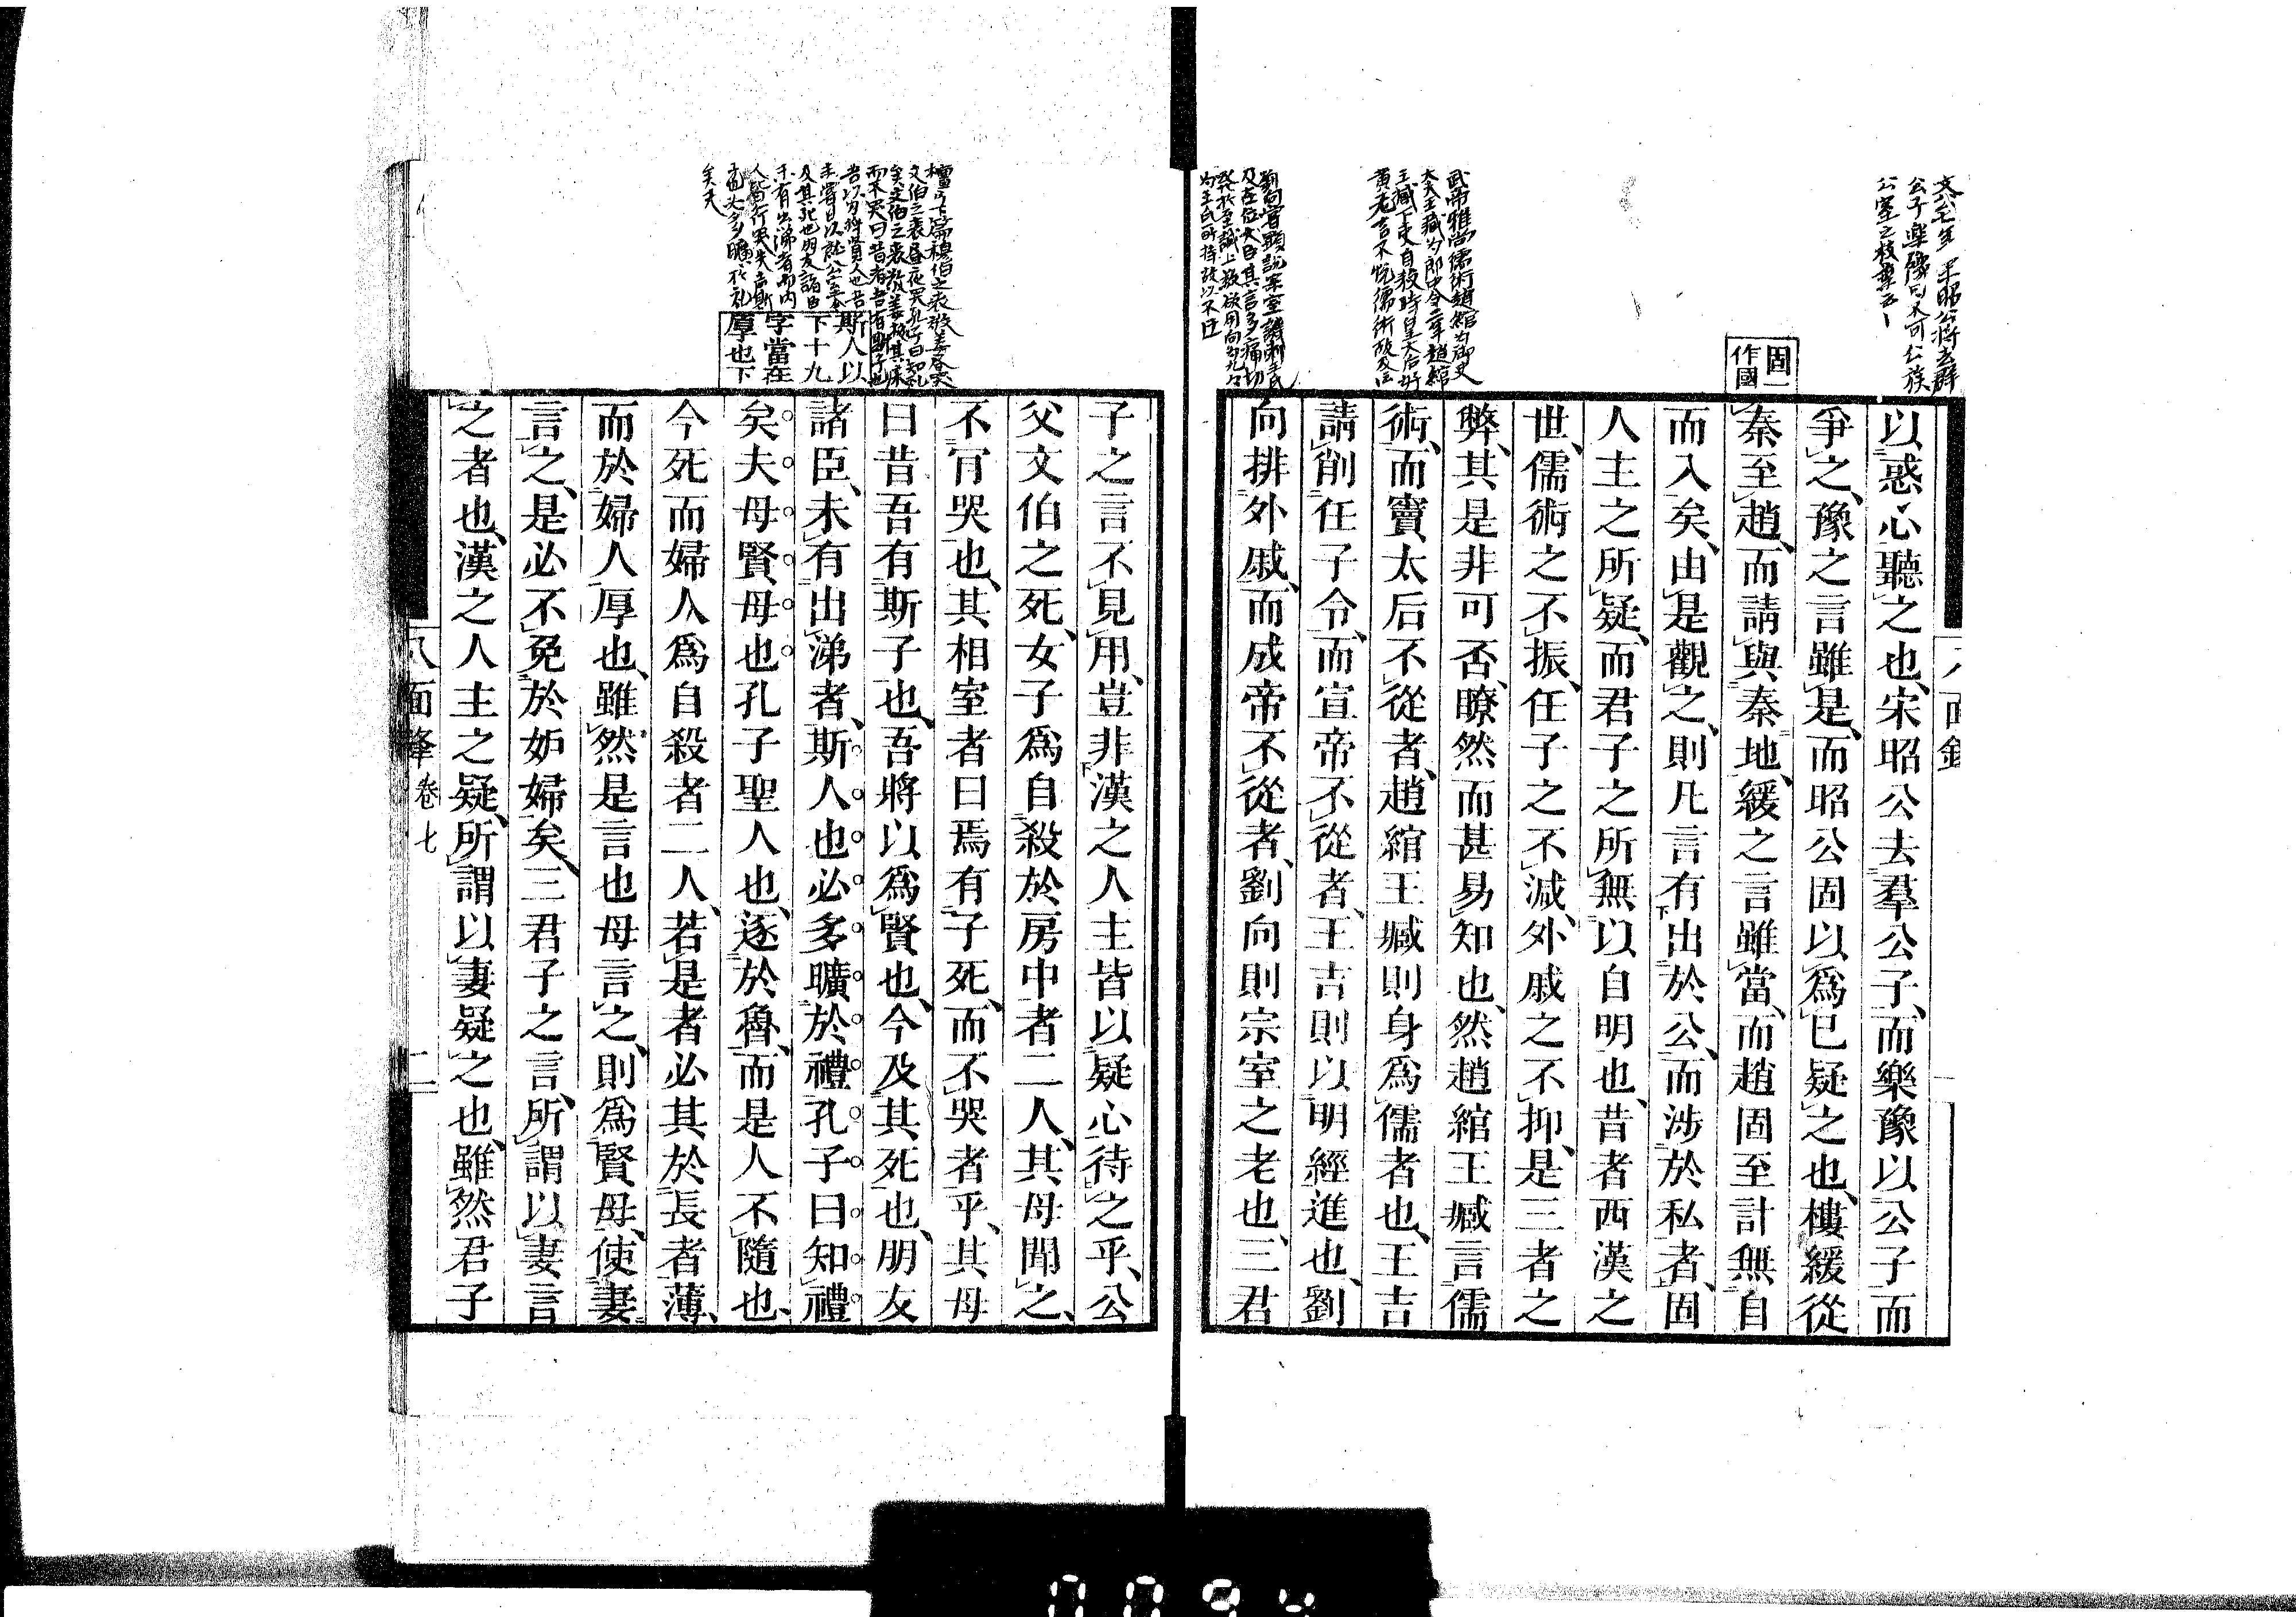 以惑心聽之也宋昭公去羣公子而樂豫以公子而
爭之豫之言雖是而昭公固以爲已疑之也樓緩從
秦至趙而請與秦地緩之言雖當而趙固至計無自
而入矣由是觀之則凡言有出於公而涉於私者固
人主之所疑而君子之所無以自明也昔者西漢之
世儒術之不振任子之不減外戚之不抑是三者之
弊其是非可否瞭然而甚易知也然趙綰王臧言儒
術而竇太后不從者趙綰王臧則身爲儒者也王吉
請削任子令而宣帝不從者王吉則以明經進也劉
向排外戚而成帝不從者劉向則宗室之老也三君
固一
作國
武帝雅尚儒術趙綰為御史
大夫王臧为郎中令二年趙綰
王臧下吏自殺時皇太后好
黃老言不悅儒術故及
八面鋒
子之言不見用豈非漢之人主皆以疑心待之乎公
父文伯之死女子爲自殺於房中者二人其母聞之
不肯哭也其相室者曰焉有子死而不哭者乎其母
曰昔吾有斯子也吾將以爲賢也今及其死也朋友
諸臣未有出涕者斯人也必多曠於禮孔子曰知禮
矣夫母賢母也孔子聖人也逐於魯而是人不隨也
今死而婦人爲自殺者二人若是者必其於長者薄
而於婦人厚也雖然是言也母言之則爲賢母使妻
言之是必不免於妒婦矣三君子之言所謂以妻言
之者也漢之人主之疑所謂以妻疑之也雖然君子
斯人以
下十九
字當在
厚也下
八面鋒 卷七 二
0094